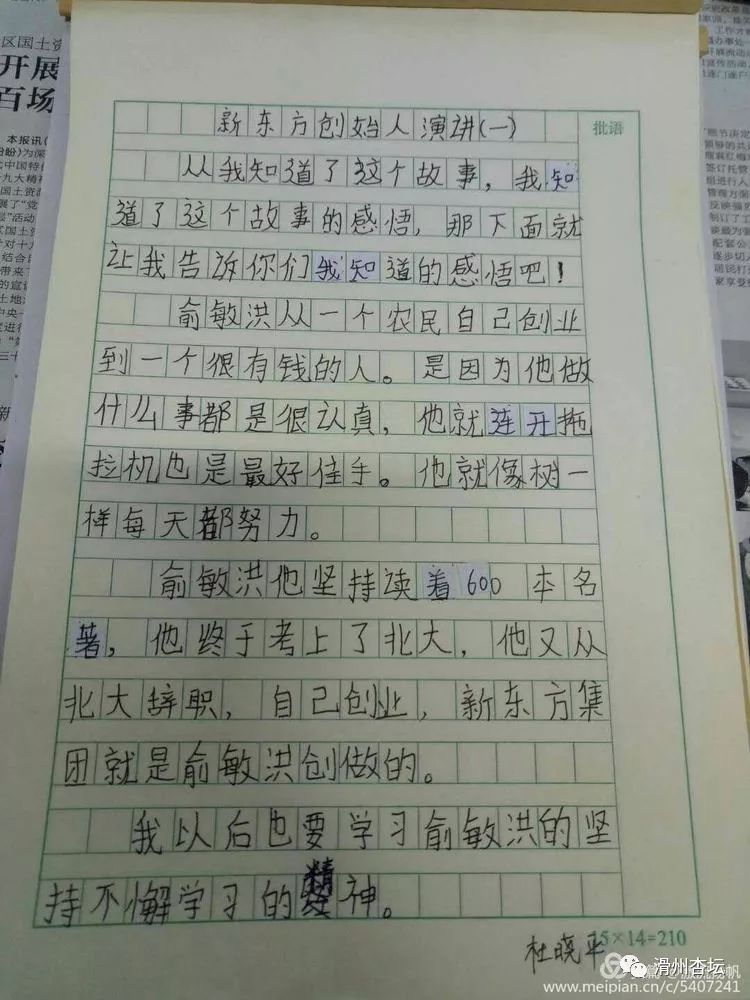 新东方创始人演讲(一)
批语
从我知道了这个故事，我知
道了这个故事的感悟，那下面就
让我告诉你们我知道的感悟吧！
俞敏洪从一个农民自己创业
到一个很有钱的人。是因为他做
什么事都是很认真，他就连开拖
拉机也是最好佳手。他就像树一
样每天都努力。
俞敏洪他坚持读着600本名
著，他终于考上了北大，他又从
北大辞职，自己创业，新东方集
团就是俞敏洪创做的。
我以后也要学习俞敏洪的坚
持不懈学习的精神。
杜晓平
15×14=210
滑州杏坛
www.meipian.cn/c/5407241
区国土资
开展
百场
本报讯